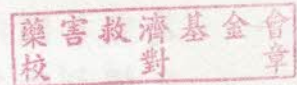 藥害救濟基金會
校對章